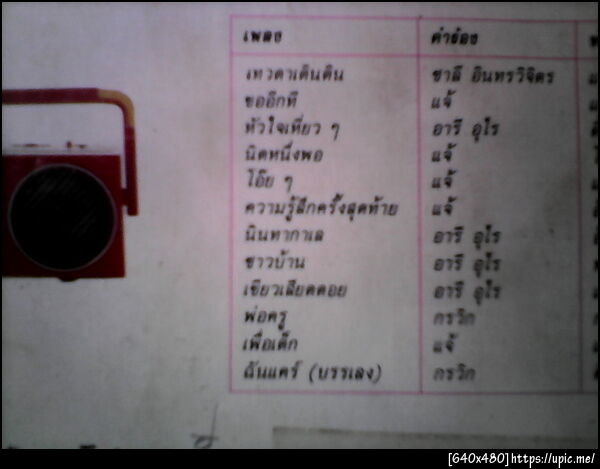 เพลง คำร้อง
เทวดาเดินดิน ชาลี อินทรวิจิตร
ขออีกที แจ้
หัวใจเหี่ยว ๆ อารี อุไร
นิดหนึ่งพอ แจ้
โอ๊ย ๆ แจ้
ความรู้สึกครั้งสุดท้าย แจ้
นินทากาเล อารี อุไร
ชาวบ้าน อารี อุไร
เขียวเสียดดอย อารี อุไร
พ่อครู กรวิก
เพื่อเด็ก แจ้
ฉันแคร์ (บรรเลง) กรวิก
[640x480]https://upic.me/